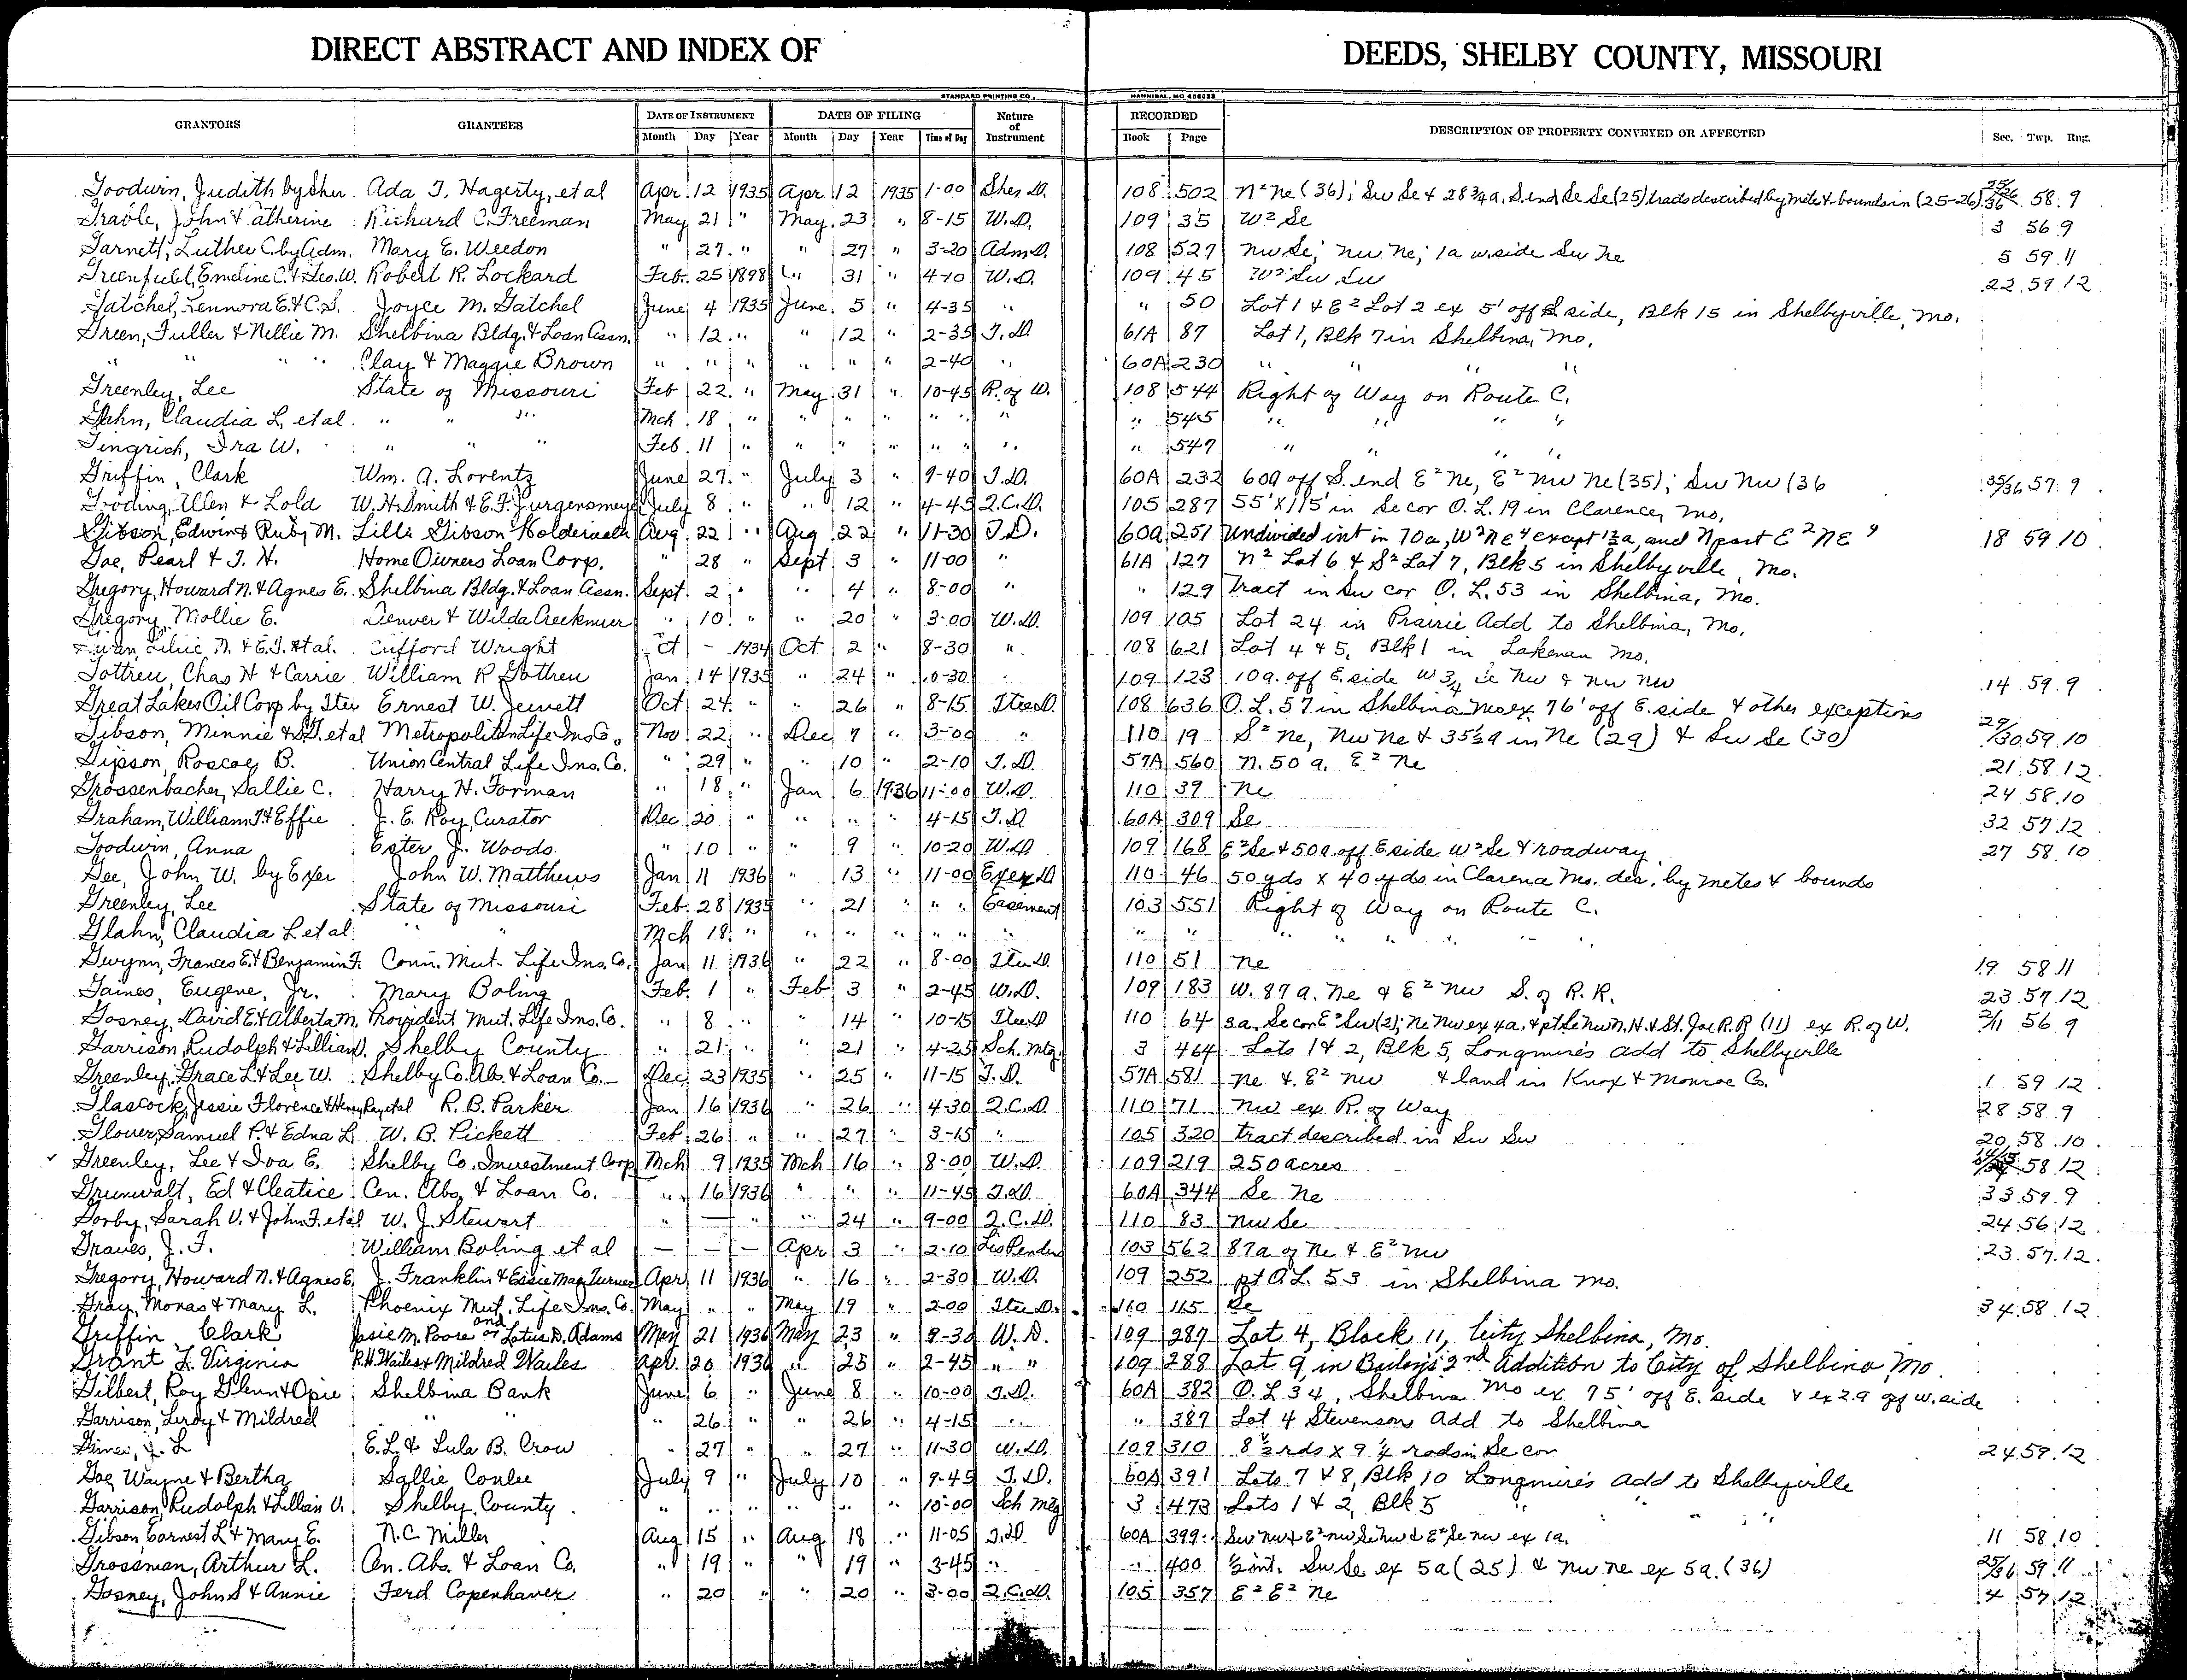 DIRECT ABSTRACT AND INDEX OF DEEDS, SHELBY COUNTY, MISSOURI
STANDARD PRINTING CO., HANNIBAL, MO
GRANTORS GRANTEES DATE OF INSTRUMENT DATE OF FILING Nature of Instrument RECORDED DESCRIPTION OF PROPERTY CONVEYED OR AFFECTED Sec. Twp. Rng.
Month Day Year Month Day Year Time of Day Book Page
Goodwin, Judith by Sher Ada T. Hagerty, et al Apr 12 1935 Apr 12 1935 1-00 Sher D. 108 502 N² Ne (36); Sw Se & 28 3/4 a. S. end Se Se (25) tracts described by mete & bounds in (25-26) 25/26 36 58 9
Grable, John & Catherine Richard C. Freeman May 21 " May 23 " 8-15 W.D. 109 35 W² Se 3 56 9
Garnett, Luther C. by Adm. Mary E. Weedon " 27 " " 27 " 3-20 Adm D. 108 527 Nw Se; Nw Ne; 1a w. side Sw Ne 5 59 11
Greenfield, Emeline C. & Geo. W. Robert R. Lockard Feb. 25 1898 " 31 " 4-10 W.D. 109 45 W² Sw Sw 22 59 12
Gatchel, Lennora E. & C.S. Joyce M. Gatchel June 4 1935 June 5 " 4-35 " " 50 Lot 1 & E² Lot 2 ex 5' off side, Blk 15 in Shelbyville, Mo.
Green, Fuller & Nellie M. Shelbina Bldg. & Loan Assn. " 12 " " 12 " 2-35 T.D. 61A 87 Lot 1, Blk 7 in Shelbina, Mo.
" " " Clay & Maggie Brown " " " " " " 2-40 " 60A 230 " " " "
Greenley, Lee State of Missouri Feb 22 " May 31 " 10-45 R. of W. 108 544 Right of Way on Route C.
Glahn, Claudia L. et al " " " Mch 18 " " " " " " " " 545 " " " "
Gingrich, Ira W. " " " Feb. 11 " " " " " " " " 547 " " " "
Griffin, Clark Wm. A. Lorentz June 27 " July 3 " 9-40 T.D. 60A 232 60a off S. end E² Ne, E² Nw Ne (35); Sw Nw (36 35/36 57 9
Gooding, Allen & Lola W.H. Smith & E.F. Jurgensmeyer July 8 " " 12 " 4-45 Q.C.D. 105 287 55' x 115' in Se cor O.L. 19 in Clarence, Mo.
Gibson, Edwin & Ruby M. Lilli Gibson Aug. 22 " Aug 22 " 11-30 T.D. 60A 251 Undivided int in 70a, W² NE 4 except 1½a, and N part E² NE 4 18 59 10
Goe, Pearl & T. H. Home Owners Loan Corp. " 28 " Sept 3 " 11-00 " 61A 127 N² Lot 6 & S² Lot 7, Blk 5 in Shelbyville, Mo.
Gregory, Howard N. & Agnes E. Shelbina Bldg. & Loan Assn. Sept 2 " " 4 " 8-00 " " 129 Tract in Sw cor O.L. 53 in Shelbina, Mo.
Gregory, Mollie E. Denver & Wilda Creekmur " 10 " " 20 " 3-00 W.D. 109 105 Lot 24 in Prairie Add to Shelbina, Mo.
N. & E.T. et al. Clifford Wright Oct - 1934 Oct 2 " 8-30 " 108 621 Lot 4 & 5, Blk 1 in Lakenan Mo.
Gottreu, Chas H & Carrie William R Gottreu Jan. 14 1935 " 24 " 10-30 " 109 123 10a. off E. side W 3/4 Nw & Nw Nw 14 59 9
Great Lakes Oil Corp by Ttee Ernest W. Jewett Oct 24 " " 26 " 8-15 Ttee D. 108 636 O.L. 57 in Shelbina Mo ex 76' off E. side & other exceptions
Gibson, Minnie & et al Metropolitan Life Ins Co. Nov 22 " Dec 7 " 3-00 " 110 19 S² Ne, Nw Ne & 35½a in Ne (29) & Sw Se (30) 29/30 59 10
Gipson, Roscoe B. Union Central Life Ins. Co. " 29 " " 10 " 2-10 T.D. 57A 560 N. 50 a. E² Ne 21 58 12
Grossenbacher, Sallie C. Harry H. Forman " 18 " Jan 6 1936 11-00 W.D. 110 39 Ne 24 58 10
Graham, William T. & Effie J. E. Roy, Curator Dec 20 " " " " 4-15 T.D 60A 309 Se 32 57 12
Goodwin, Anna Ester J. Woods " 10 " " 9 " 10-20 W.D 109 168 E² Se & 50a. off E side W² Se & roadway 27 58 10
Gee, John W. by Exer John W. Matthews Jan 11 1936 " 13 " 11-00 Exer D 110 46 50 yds x 40 yds in Clarence Mo. des. by metes & bounds
Greenley, Lee State of Missouri Feb. 28 1935 " 21 " " " Easement 103 551 Right of Way on Route C.
Glahn, Claudia L et al " " Mch 18 " " " " " " " " " " " " "
Gwynn, Frances E. & Benjamin F. Conn. Mut. Life Ins. Co. Jan 11 1936 " 22 " 8-00 Ttee D. 110 51 Ne 19 58 11
Gaines, Eugene, Jr. Mary Boling Feb. 1 " Feb 3 " 2-45 W.D. 109 183 W. 87 a. Ne & E² Nw S. of R.R. 23 57 12
Gosney, David E. & Alberta M. Provident Mut. Life Ins. Co. " 8 " " 14 " 10-15 Ttee D 110 64 3a. Se cor E² Sw (2); Ne Nw ex 4a. & pt Se Nw N. H. & St. Joe R.R (11) ex R. of W. 2/11 56 9
Garrison, Rudolph & Lillian V. Shelby County " 21 " " 21 " 4-25 Sch. Mtg. 3 464 Lots 1 & 2, Blk 5, Longmire's add to Shelbyville
Greenley, Grace L. & Lee W. Shelby Co. Ab. & Loan Co. Dec 23 1935 " 25 " 11-15 T.D. 57A 581 Ne & E² Nw & land in Knox & Monroe Co. 1 59 12
Glascock, Jessie Florence & Henry Ray et al R. B. Parker Jan 16 1936 " 26 " 4-30 Q.C.D. 110 71 Nw ex R. of Way 28 58 9
Glover, Samuel P. & Edna L. W. B. Pickett Feb 26 " " 27 " 3-15 " 105 320 tract described in Sw Sw 20 58 10
✓ Greenley, Lee & Iva E. Shelby Co. Investment Corp Mch 9 1935 Mch 16 " 8-00 W.D. 109 219 250 acres 58 12
Grunwalt, Ed & Cleatice Cen. Abs. & Loan Co. " 16 1936 " " " 11-45 T.D. 60A 344 Se Ne 33 59 9
Gorby, Sarah V. & John F. et al W. J. Stewart " — " " 24 " 9-00 Q.C.D. 110 83 Nw Se 24 56 12
Graves, J. F. William Boling et al — — — Apr 3 " 2-10 Lis Pendens 103 562 87a of Ne & E² Nw 23 57 12
Gregory, Howard N. & Agnes E. J. Franklin & Essie Mae Turner Apr 11 1936 " 16 " 2-30 W.D. 109 252 pt O.L. 53 in Shelbina Mo.
Gray, Monas & Mary L. Phoenix Mut. Life Ins. Co. May " " May 19 " 2-00 Ttee D. 110 115 Se 34 58 12
Griffin Clark Josie M. Poore and or Lotus D. Adams May 21 1936 May 23 " 9-30 W.D. 109 287 Lot 4, Block 11, City Shelbina, Mo.
Grant L. Virginia R.H. Wailes & Mildred Wailes Apr. 20 1936 " 25 " 2-45 " " 109 288 Lot 9 in Bailey's 2nd Addition to City of Shelbina Mo
Gilbert, Roy Glenn & Opie Shelbina Bank June 6 " June 8 " 10-00 T.D. 60A 382 O.L 34, Shelbina Mo ex 75' off E. side & ex 2.9 off w. side
Garrison, Leroy & Mildred " " " 26 " " 26 " 4-15 " " 387 Lot 4 Stevensons Add to Shelbina
Gaines, J. L E.L. & Lula B. Crow " 27 " " 27 " 11-30 W.D. 109 310 8½ rds x 9¼ rods in Se cor 24 59 12
Goe, Wayne & Bertha Sallie Conlee July 9 " July 10 " 9-45 T.D. 60A 391 Lots 7 & 8, Blk 10 Longmire's Add to Shelbyville
Garrison, Rudolph & Lillian V. Shelby County " " " " " " 10-00 Sch Mtg 3 473 Lots 1 & 2, Blk 5 " " " "
Gibson, Earnest L & Mary E. N.C. Miller Aug 15 " Aug 18 " 11-05 T.D 60A 399 Sw Nw & E² Nw Se Nw & E² Se Nw ex 1a. 11 58 10
Grossman, Arthur L. Cen. Abs. & Loan Co. " 19 " " 19 " 3-45 " " 400 ½ int. Sw Se ex 5a (25) & Nw Ne ex 5a. (36) 25/36 59 11
Gosney, John S & Annie Ferd Copenhaver " 20 " " 20 " 3-00 Q.C.D. 105 357 E² E² Ne 4 57 12